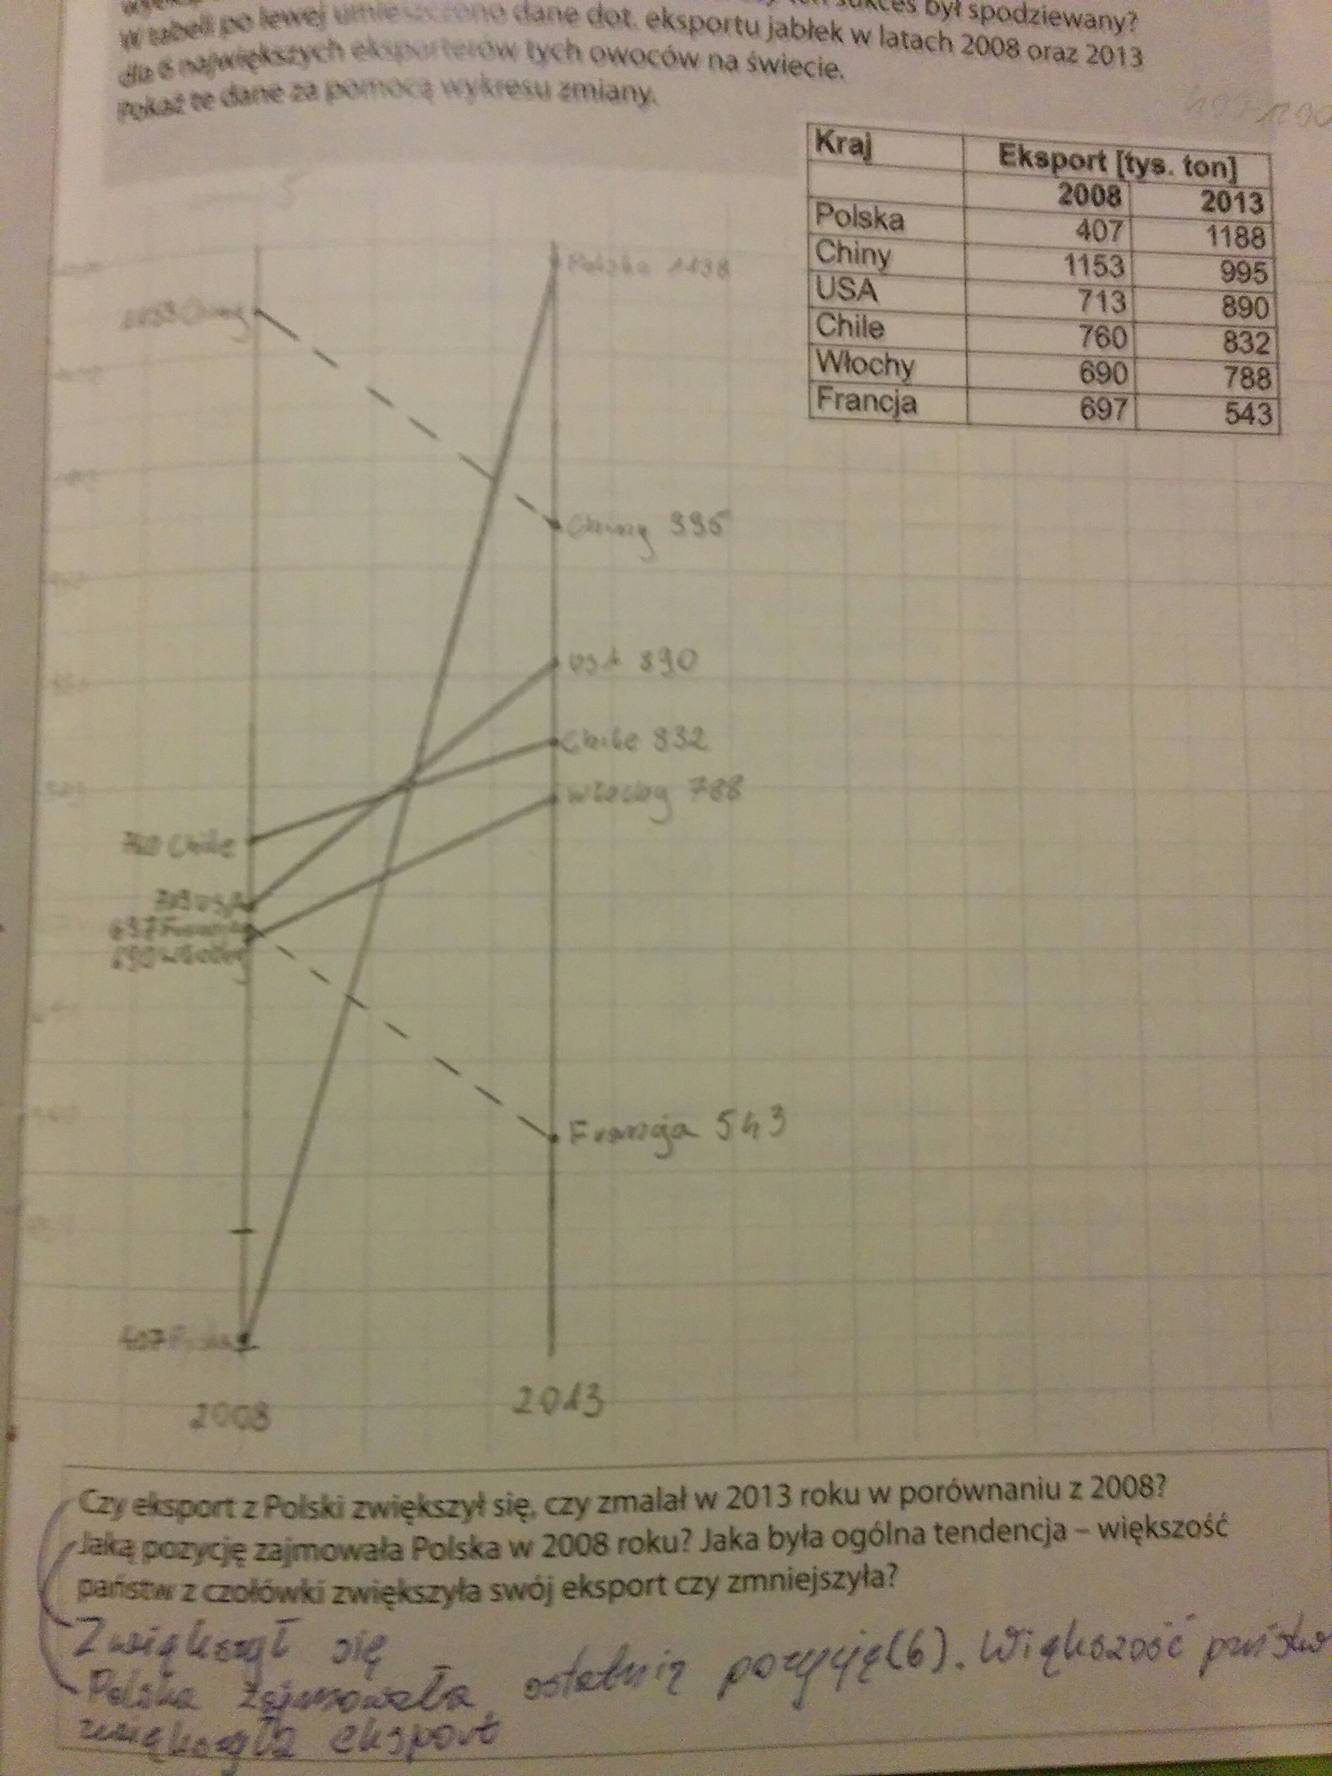 sukces był spodziewany?
W tabeli po lewej umieszczono dane dot. eksportu jabłek w latach 2008 oraz 2013
dla 6 największych eksporterów tych owoców na świecie.
Pokaż te dane za pomocą wykresu zmiany.
Kraj Eksport [tys. ton]
2008 2013
Polska 407 1188
Chiny 1153 995
USA 713 890
Chile 760 832
Włochy 690 788
Francja 697 543
Polska 1188
1153 Chiny
Chiny 995
USA 890
Chile 832
Włochy 788
760 Chile
713 USA
697 Francja
690 Włochy
Francja 543
407 Polska
2008 2013
Czy eksport z Polski zwiększył się, czy zmalał w 2013 roku w porównaniu z 2008?
Jaką pozycję zajmowała Polska w 2008 roku? Jaka była ogólna tendencja – większość
państw z czołówki zwiększyła swój eksport czy zmniejszyła?
Zwiększył się
Polska zajmowała ostatnią pozycję (6). Większość państw
zwiększyła eksport